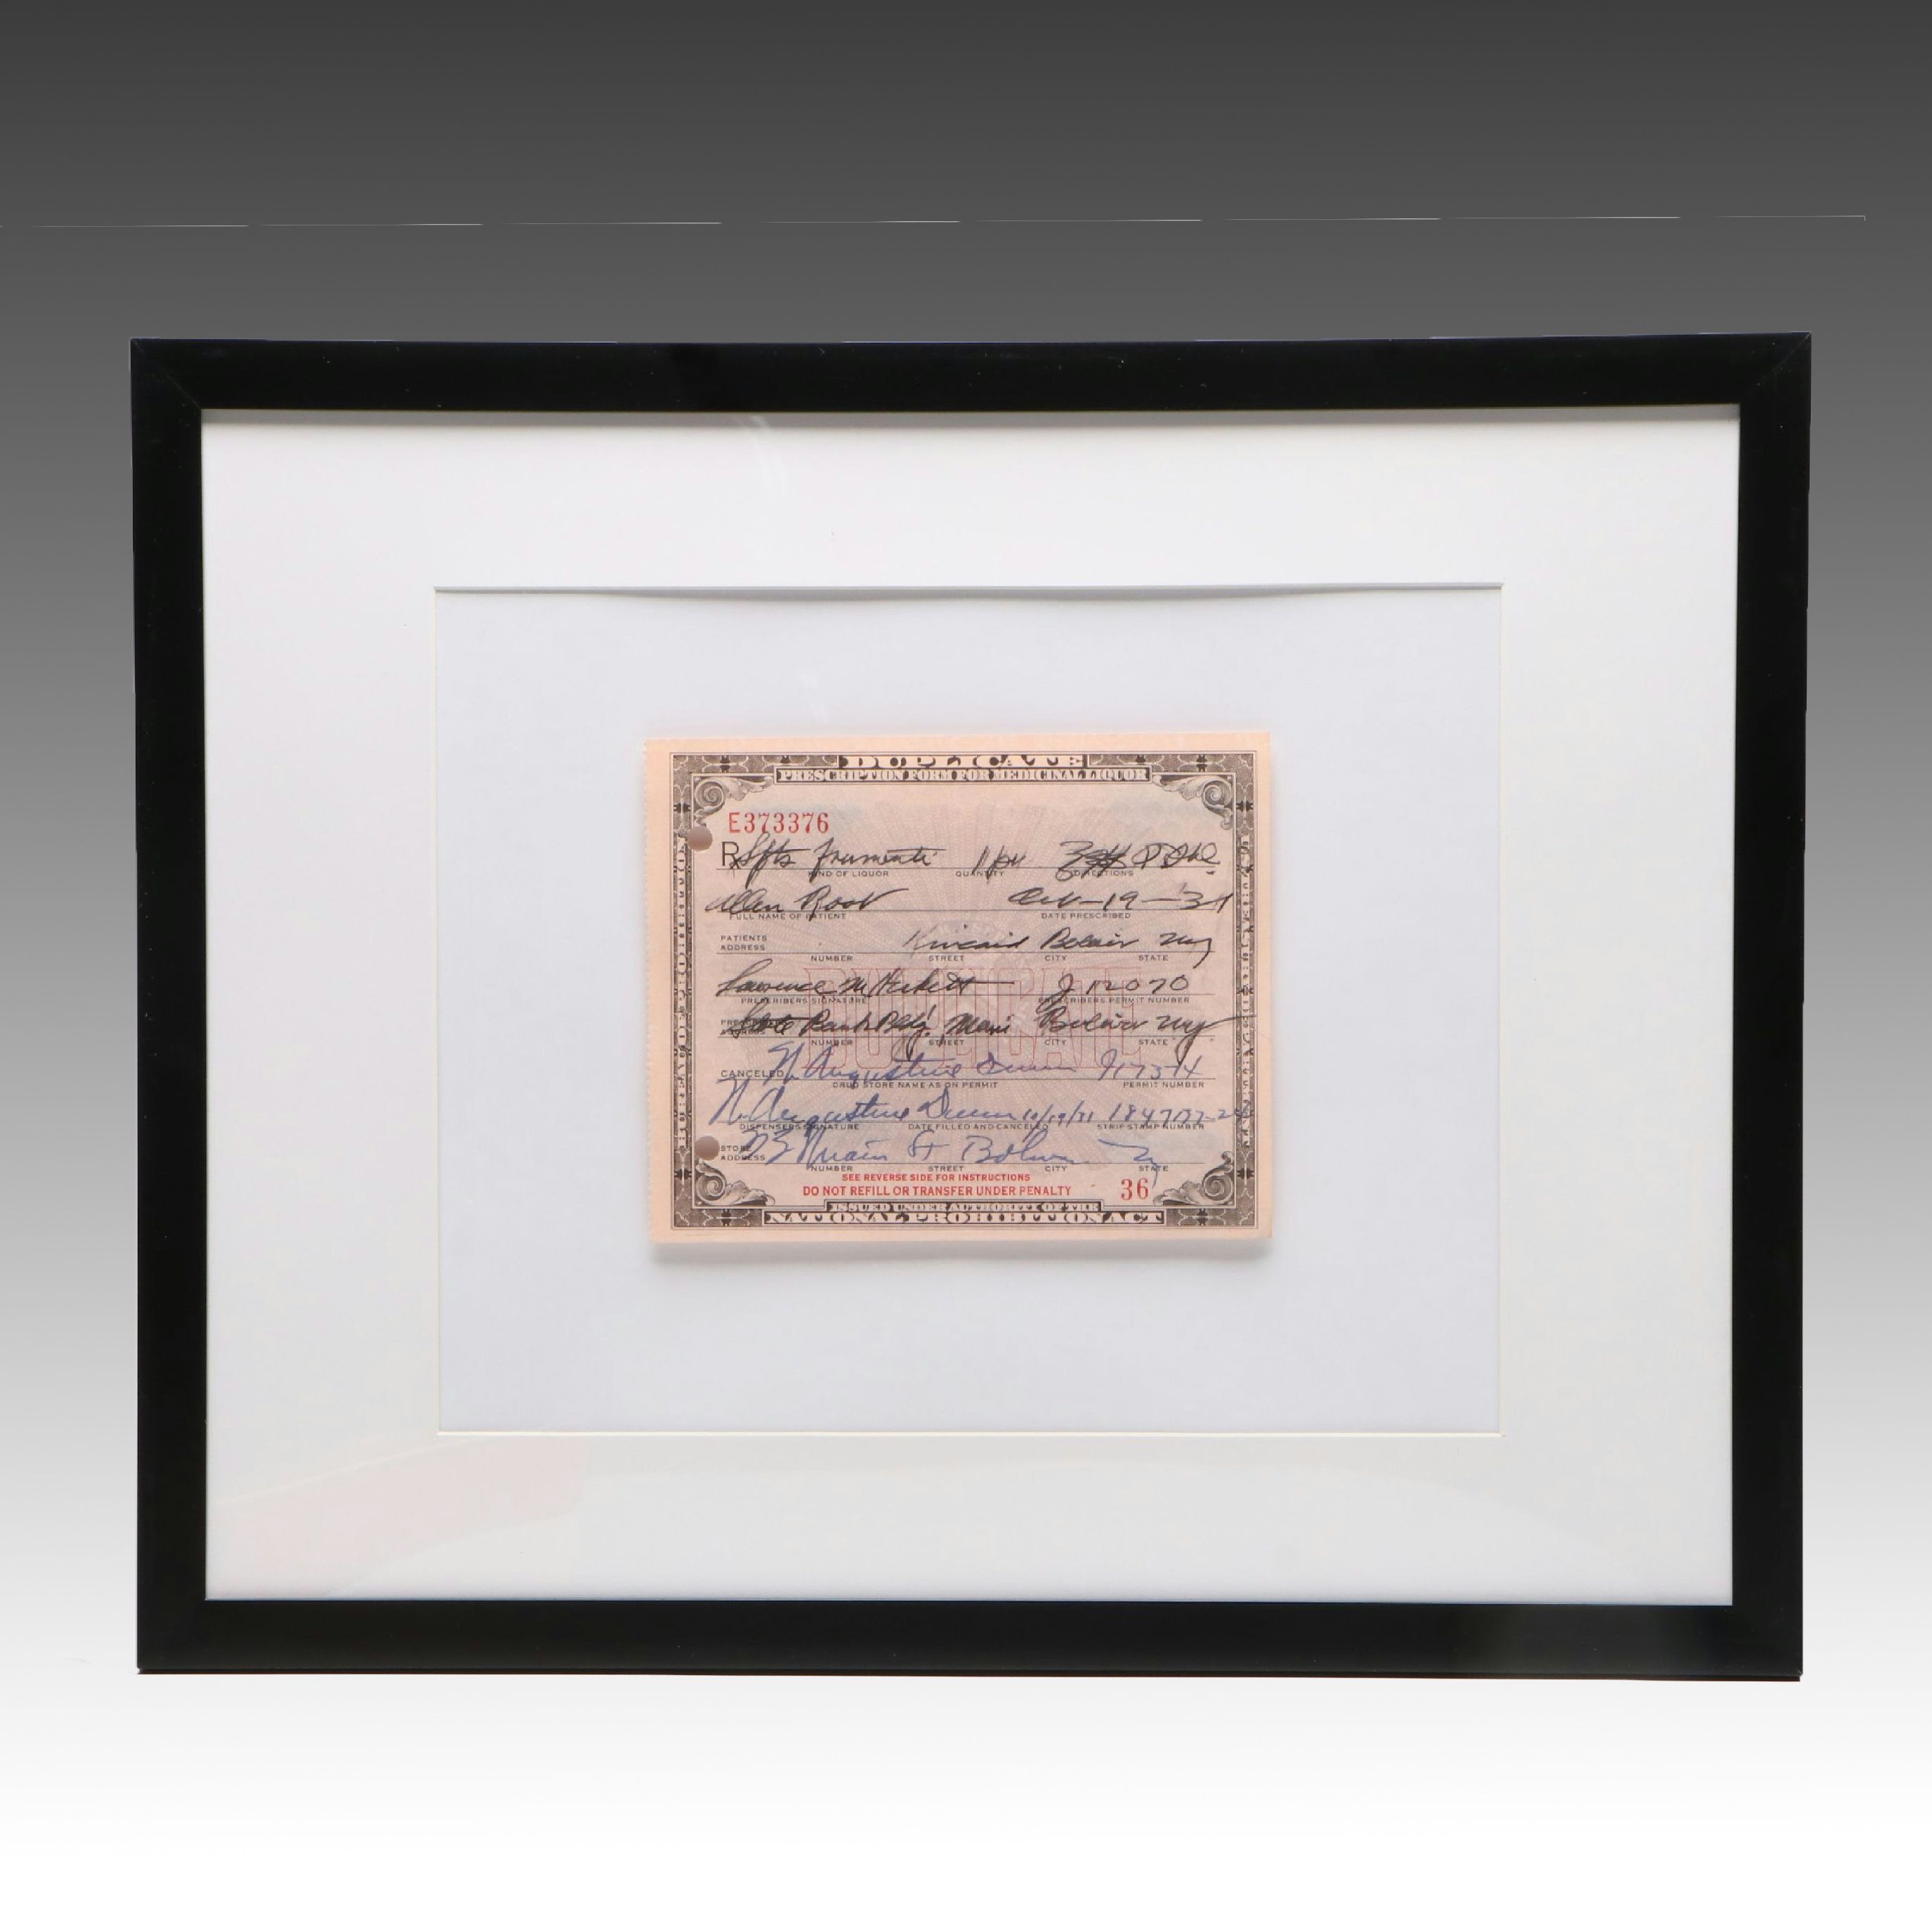 DUPLICATE
PRESCRIPTION FORM FOR MEDICINAL LIQUOR
E373376
R Spts Frumenti 1 pt
KIND OF LIQUOR QUANTITY DIRECTIONS
Allen Root Oct-19-31
FULL NAME OF PATIENT DATE PRESCRIBED
Kincaid Bolivar NY
PATIENTS ADDRESS
NUMBER STREET CITY STATE
Lawrence M J 12070
PRESCRIBERS SIGNATURE PRESCRIBERS PERMIT NUMBER
State Bank Bldg. Main Bolivar NY
ADDRESS
NUMBER STREET CITY STATE
CANCELED N. Augustine Dunn
DRUG STORE NAME AS ON PERMIT PERMIT NUMBER
N. Augustine Dunn 10/19/31
DISPENSERS SIGNATURE DATE FILLED AND CANCELED STRIP STAMP NUMBER
STORE ADDRESS Main St Bolivar
NUMBER STREET CITY STATE
SEE REVERSE SIDE FOR INSTRUCTIONS
DO NOT REFILL OR TRANSFER UNDER PENALTY 36
ISSUED UNDER AUTHORITY OF THE
NATIONAL PROHIBITION ACT
DUPLICATE